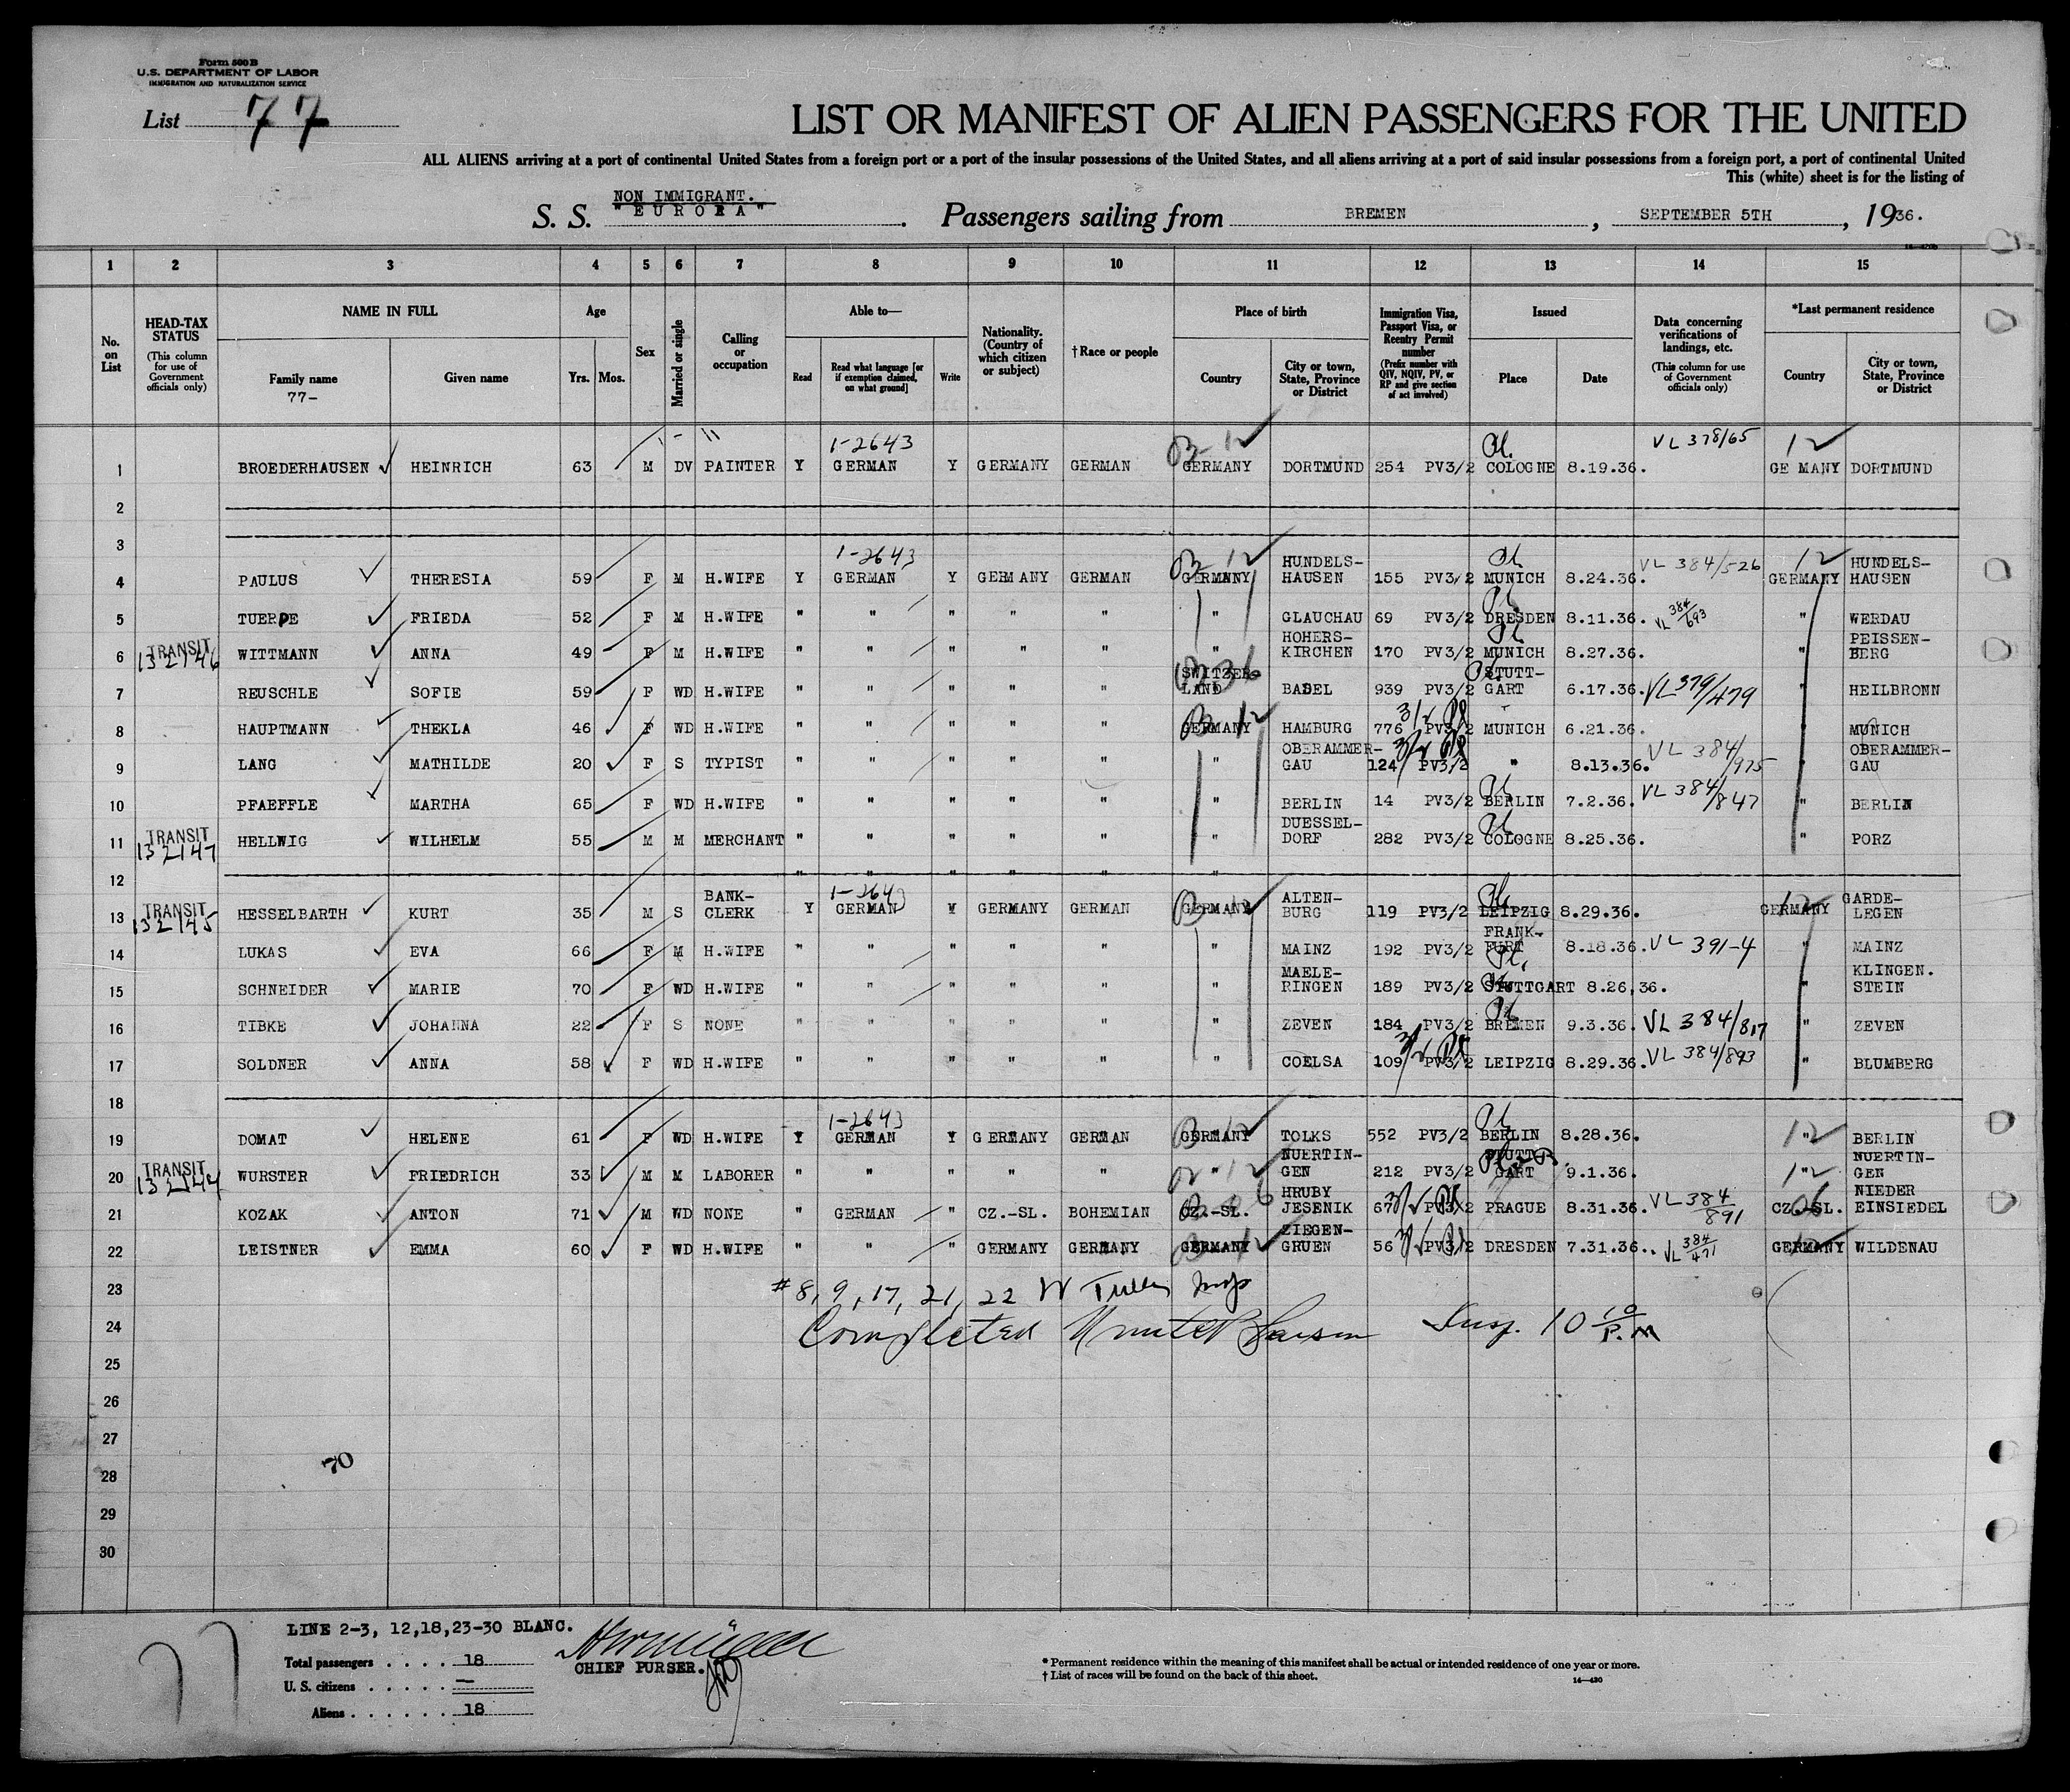 Form 500 B
U.S. DEPARTMENT OF LABOR
IMMIGRATION AND NATURALIZATION SERVICE
List 77
LIST OR MANIFEST OF ALIEN PASSENGERS FOR THE UNITED
ALL ALIENS arriving at a port of continental United States from a foreign port or a port of the insular possessions of the United States, and all aliens arriving at a port of said insular possessions from a foreign port, a port of continental United
This (white) sheet is for the listing of
NON IMMIGRANT.
S. S. "EUROPA". Passengers sailing from BREMEN, SEPTEMBER 5TH, 1936.
1 2 3 4 5 6 7 8 9 10 11 12 13 14 15
No. on List
HEAD-TAX STATUS (This column for use of Government officials only)
NAME IN FULL
Family name 77-
Given name
Age Yrs. Mos.
Sex
Married or single
Calling or occupation
Able to—
Read
Read what language [or if exemption claimed, on what ground]
Write
Nationality. (Country of which citizen or subject)
†Race or people
Place of birth
Country
City or town, State, Province or District
Immigration Visa, Passport Visa, or Reentry Permit number (Prefix number with QIV, NQIV, PV, or RP and give section of act involved)
Issued
Place
Date
Data concerning verifications of landings, etc. (This column for use of Government officials only)
*Last permanent residence
Country
City or town, State, Province or District
1-2643 B 12 VL 378/65 12
1 BROEDERHAUSEN HEINRICH 63 M DV PAINTER Y GERMAN Y GERMANY GERMAN GERMANY DORTMUND 254 PV3/2 COLOGNE 8.19.36. GE MANY DORTMUND
2
3
1-2643 B 12 12
4 PAULUS THERESIA 59 F M H.WIFE Y GERMAN Y GERMANY GERMAN GERMANY HUNDELS-HAUSEN 155 PV3/2 MUNICH 8.24.36. VL 384/526 GERMANY HUNDELS-HAUSEN
5 TUERPE FRIEDA 52 F M H.WIFE " " " " " GLAUCHAU 69 PV3/2 DRESDEN 8.11.36. VL 384/693 " WERDAU
6 TRANSIT 132146 WITTMANN ANNA 49 F M H.WIFE " " " " " " HOHERS-KIRCHEN 170 PV3/2 MUNICH 8.27.36. " PEISSEN-BERG
7 REUSCHLE SOFIE 59 F WD H.WIFE " " " " " SWITZER-LAND BASEL 939 PV3/2 STUTT-GART 6.17.36. VL379/479 " HEILBRONN
8 HAUPTMANN THEKLA 46 F WD H.WIFE " " " " " GERMANY HAMBURG 776 PV3/2 MUNICH 6.21.36. " MUNICH
9 LANG MATHILDE 20 F S TYPIST " " " " " " OBERAMMER-GAU 124 PV3/2 " 8.13.36. VL 384/975 " OBERAMMER-GAU
10 PFAEFFLE MARTHA 65 F WD H.WIFE " " " " " " BERLIN 14 PV3/2 BERLIN 7.2.36. VL 384/847 " BERLIN
11 TRANSIT 132147 HELLWIG WILHELM 55 M M MERCHANT " " " " " " DUESSEL-DORF 282 PV3/2 COLOGNE 8.25.36. " PORZ
12
1-2643
13 TRANSIT 132145 HESSELBARTH KURT 35 M S BANK-CLERK Y GERMAN Y GERMANY GERMAN GERMANY ALTEN-BURG 119 PV3/2 LEIPZIG 8.29.36. GERMANY GARDE-LEGEN
14 LUKAS EVA 66 F M H.WIFE " " " " " " MAINZ 192 PV3/2 FRANK-FURT 8.18.36. VL 391-4 " MAINZ
15 SCHNEIDER MARIE 70 F WD H.WIFE " " " " " " MAELE-RINGEN 189 PV3/2 STUTTGART 8.26,36. " KLINGEN.STEIN
16 TIBKE JOHANNA 22 F S NONE " " " " " " ZEVEN 184 PV3/2 BREMEN 9.3.36. VL 384/817 " ZEVEN
17 SOLDNER ANNA 58 F WD H.WIFE " " " " " " COELSA 109 PV3/2 LEIPZIG 8.29.36. VL 384/893 " BLUMBERG
18
1-2643
19 DOMAT HELENE 61 F WD H.WIFE Y GERMAN Y GERMANY GERMAN GERMANY TOLKS 552 PV3/2 BERLIN 8.28.36. " 12 BERLIN
20 TRANSIT 132144 WURSTER FRIEDRICH 33 M M LABORER " " " " " " NUERTIN-GEN 212 PV3/2 STUTT-GART 9.1.36. " 12 NUERTIN-GEN
21 KOZAK ANTON 71 M WD NONE " GERMAN " CZ.-SL. BOHEMIAN CZ.-SL. HRUBY JESENIK 67 PV3/2 PRAGUE 8.31.36. VL 384/891 CZ.-SL. NIEDER EINSIEDEL
22 LEISTNER EMMA 60 F WD H.WIFE " " " GERMANY GERMANY GERMANY ZIEGEN-GRUEN 56 PV3/2 DRESDEN 7.31.36.. VL 384/471 GERMANY WILDENAU
23 #8, 9, 17, 21, 22
24 Completed Insp. 10 10 P.M
25
26
27
28 70
29
30
77
LINE 2-3, 12,18,23-30 BLANC.
Total passengers . . . . 18
U. S. citizens . . . . . —
Aliens . . . . . . 18
CHIEF PURSER.
* Permanent residence within the meaning of this manifest shall be actual or intended residence of one year or more.
† List of races will be found on the back of this sheet.
14—430